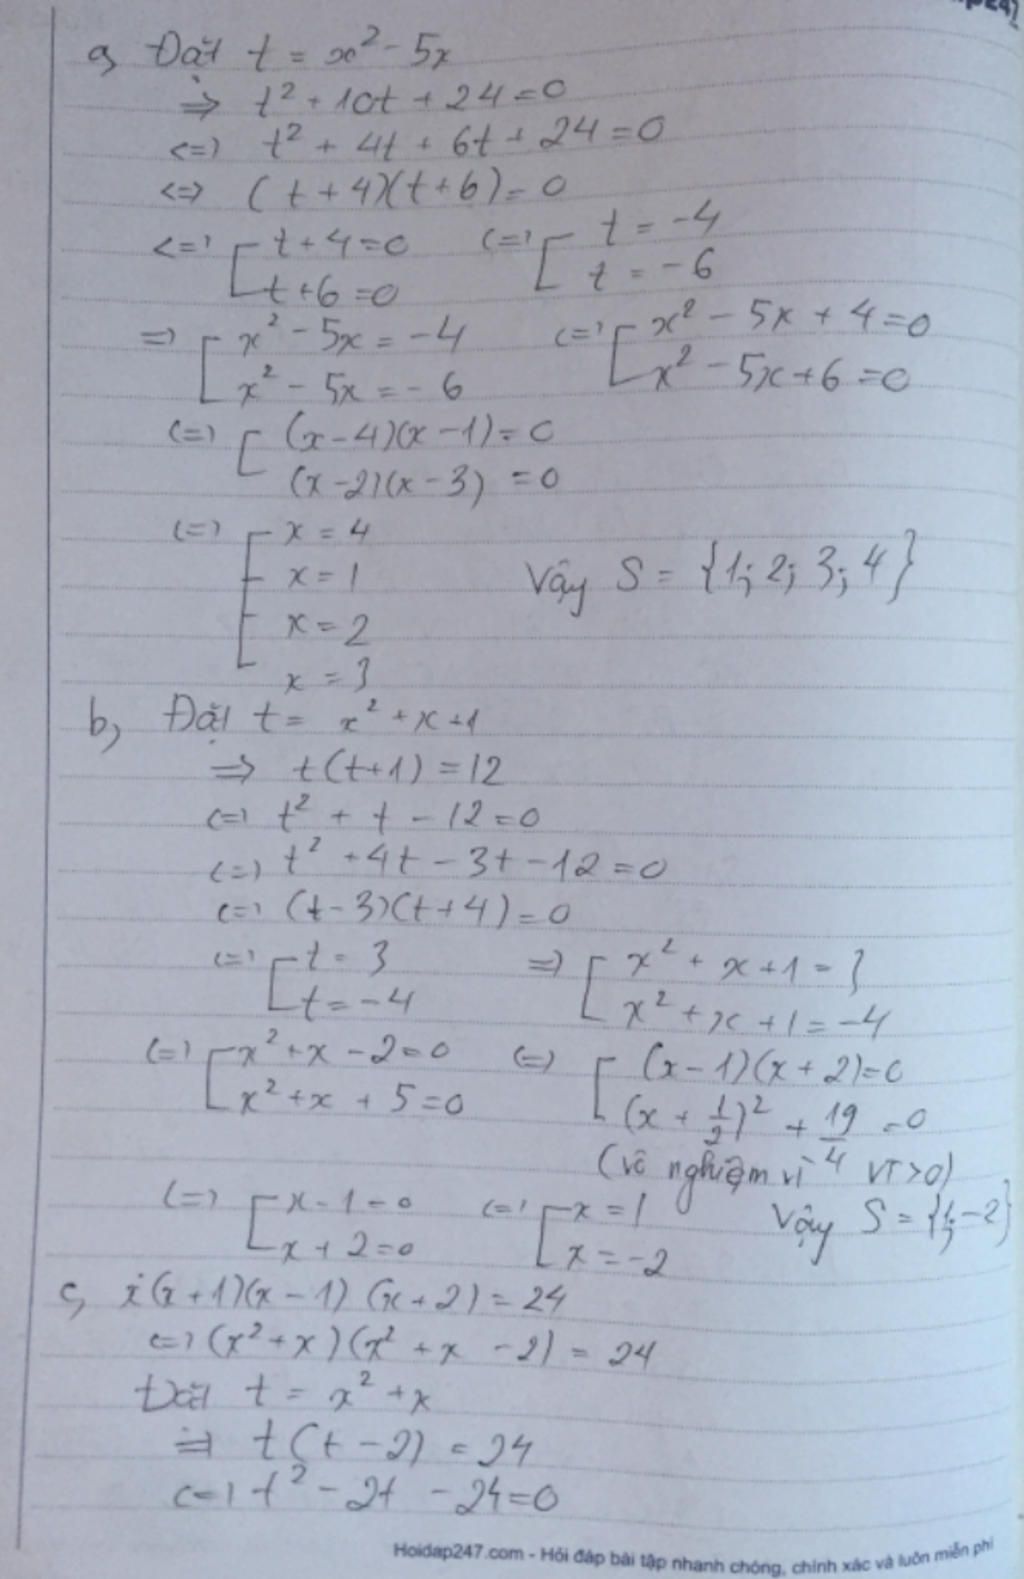 a, Đặt t = x² - 5x
=> t² + 10t + 24 = 0
<=> t² + 4t + 6t + 24 = 0
<=> (t + 4)(t + 6) = 0
<=> [ t + 4 = 0 <=> [ t = -4
t + 6 = 0 t = -6
=> [ x² - 5x = -4 <=> [ x² - 5x + 4 = 0
x² - 5x = -6 x² - 5x + 6 = 0
<=> [ (x - 4)(x - 1) = 0
(x - 2)(x - 3) = 0
<=> [ x = 4
x = 1 Vậy S = {1; 2; 3; 4}
x = 2
x = 3
b, Đặt t = x² + x + 1
=> t(t + 1) = 12
<=> t² + t - 12 = 0
<=> t² + 4t - 3t - 12 = 0
<=> (t - 3)(t + 4) = 0
<=> [ t = 3 => [ x² + x + 1 = 3
t = -4 x² + x + 1 = -4
<=> [ x² + x - 2 = 0 <=> [ (x - 1)(x + 2) = 0
x² + x + 5 = 0 (x + 1/2)² + 19/4 = 0
(vô nghiệm vì VT > 0)
<=> [ x - 1 = 0 <=> [ x = 1 Vậy S = {1; -2}
x + 2 = 0 x = -2
c, x(x + 1)(x - 1)(x + 2) = 24
<=> (x² + x)(x² + x - 2) = 24
Đặt t = x² + x
=> t(t - 2) = 24
<=> t² - 2t - 24 = 0
Hoidap247.com - Hỏi đáp bài tập nhanh chóng, chính xác và luôn miễn phí